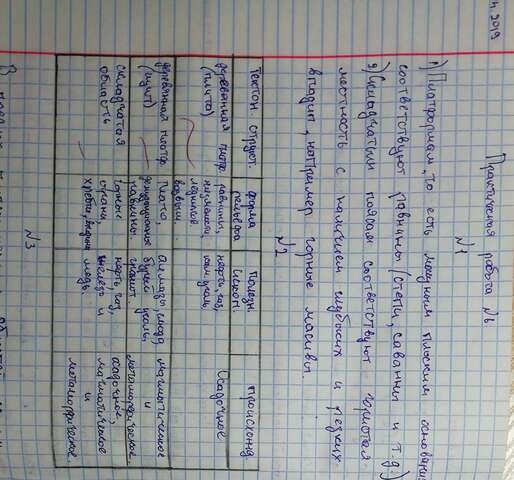 4.2019
Практическая работа №6
№1
1) Платформам, то есть мощным плоским основаниям
соответствуют равнины (степи, саванны и т.д.)
2) Складчатым поясам соответствуют гористая
местность с наличием глубоких и резких
впадин, например горные масивы
№2
Тектон. структ. форма рельефа Полезн. ископ. происхожд.
древняя платф. (плита) равнины, низменности, нефть, газ, кам. уголь Осадочное
древняя платф. (щит) Плато, равнины. Алмазы, бурый уголь, магматическое и метаморфическое.
складчатая область Горные хребты, нефть, газ, железо и медь осадочное, магматическое и метаморфическое.
№3